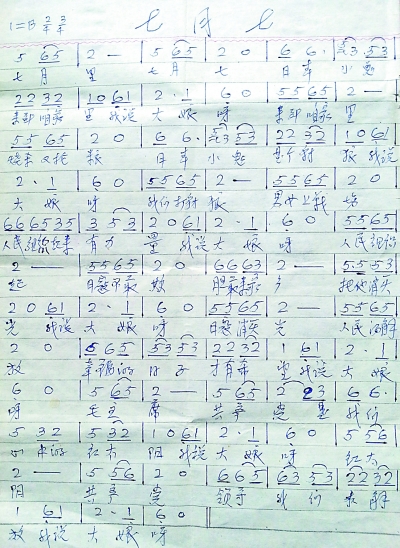 1=B 2/4 3/4 七月七
5 65 | 2 — | 5 65 | 2 0 | 6 6· | 53 53
七月 里 七月 七 日本 小鬼
22 32 | 10 61 | 2· 1 | 6 0 | 55 65 | 2 —
来到咱家 里 我说 大娘 呀 来到咱家 里
55 65 | 2 0 | 6 6· | 53 53 | 22 32 | 10 61
烧杀又抢 粮 日本 小鬼 我说
2· 1 | 6 0 | 55 65 | 2 — | 55 65 | 2 0
大娘 呀 我们 男女上战 场
666535 | 3 53 | 2 0 61 | 2· 1 | 6 0 | 55 65
人民组织起来 有力 量 我说 大娘 呀 人民组织
2 — | 55 65 | 2 0 | 66 63 | 2 — | 55 53
起 日寇 把他消灭
2 0 61 | 2· 1 | 6 0 | 55 65 | 2 — | 55 65
光 我说 大娘 呀 日寇消灭 光 人民
2 0 | 5 65 | 53 53 | 22 32 | 1 61 | 2· 1
放 幸福的 日子 才有 我说 大娘
6 0 | 5 65 | 2 — | 5 65 | 2 23 | 6 6·
呀 毛主 席 共产 党是 我们
5 32 | 5 32 | 10 61 | 2· 1 | 6 0 | 5 56
心中的 红太 阳 我说 大娘 呀 红太
2 — | 5 56 | 2 0 | 66 5 | 63 53 | 22 32
阳 共产 党 领导 我们 求解
1 61 | 2· 1 | 6 0
放 我说 大娘 呀